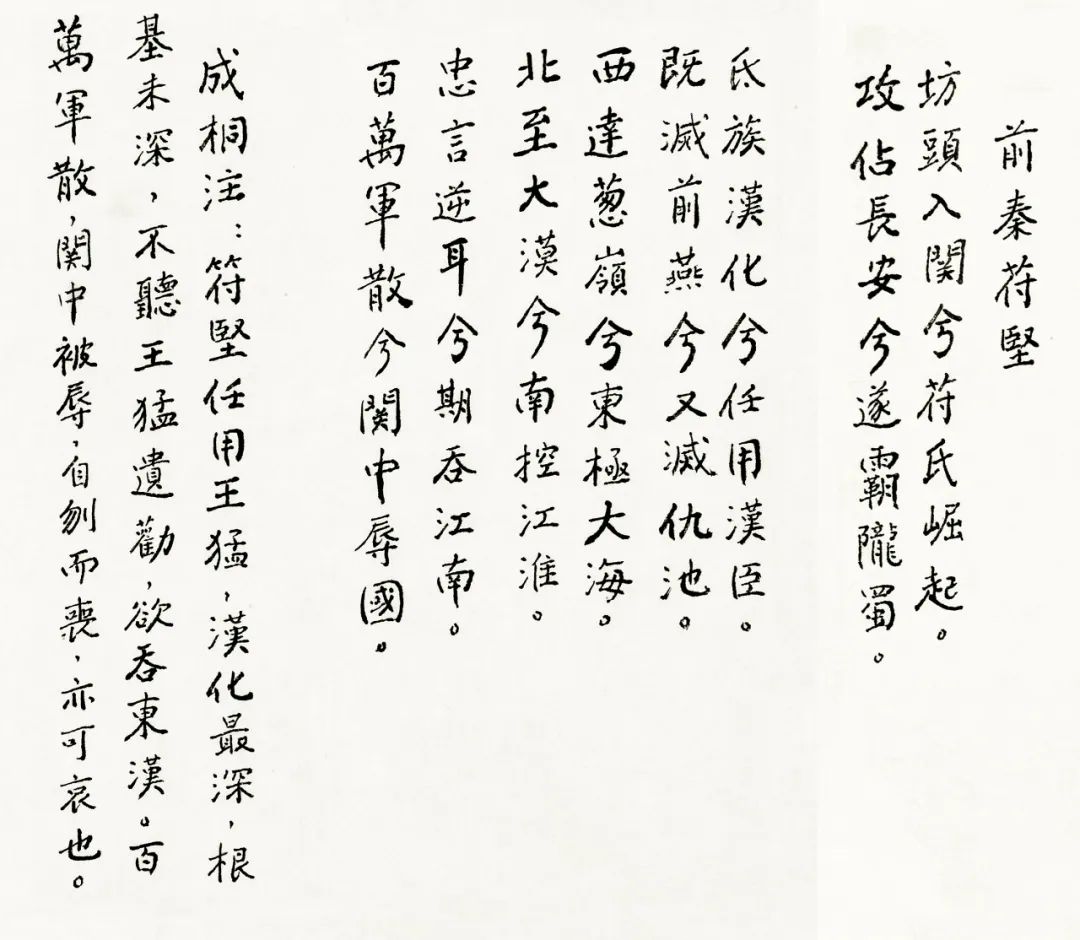 前秦苻堅
坊頭入関兮苻氏崛起。
攻佔長安兮遂霸隴蜀。
氐族漢化兮任用漢臣。
既滅前燕兮又滅仇池。
西達葱嶺兮東極大海。
北至大漠兮南控江淮。
忠言逆耳兮期吞江南。
百萬軍散兮関中辱國。
成桐注：符堅任用王猛，漢化最深，根
基未深，不聽王猛遺勸，欲吞東漢。百
萬軍散，関中被辱，自刎而喪，亦可哀也。